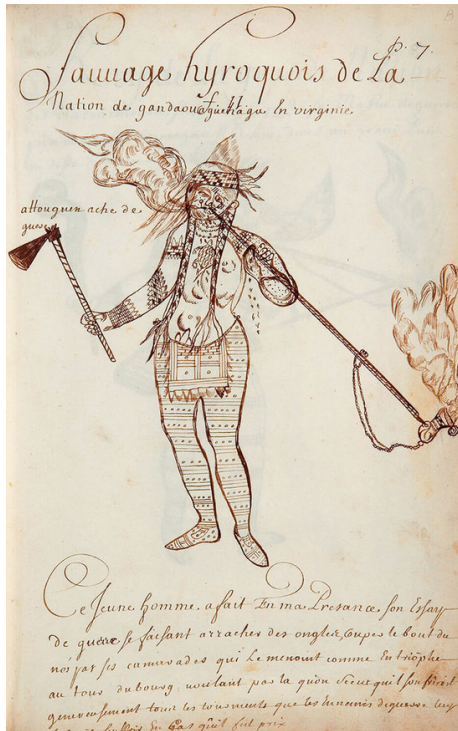 p. 7.
Sauuage hyroquois de La
Nation de gandaouaguehaga en virginie.
attouguen ache de
guerre
Ce Jeune homme a fait En ma Presance son Essay
de guerre se faisant arracher des ongles, Coupes le bout du
nés par ses camarades qui Le menoint comme En trióphe
au tour du bourg, voulant par la quon vécut quil souffriroit
genereusement tous les tourments que les Ennemis
En Cas quil fut pris